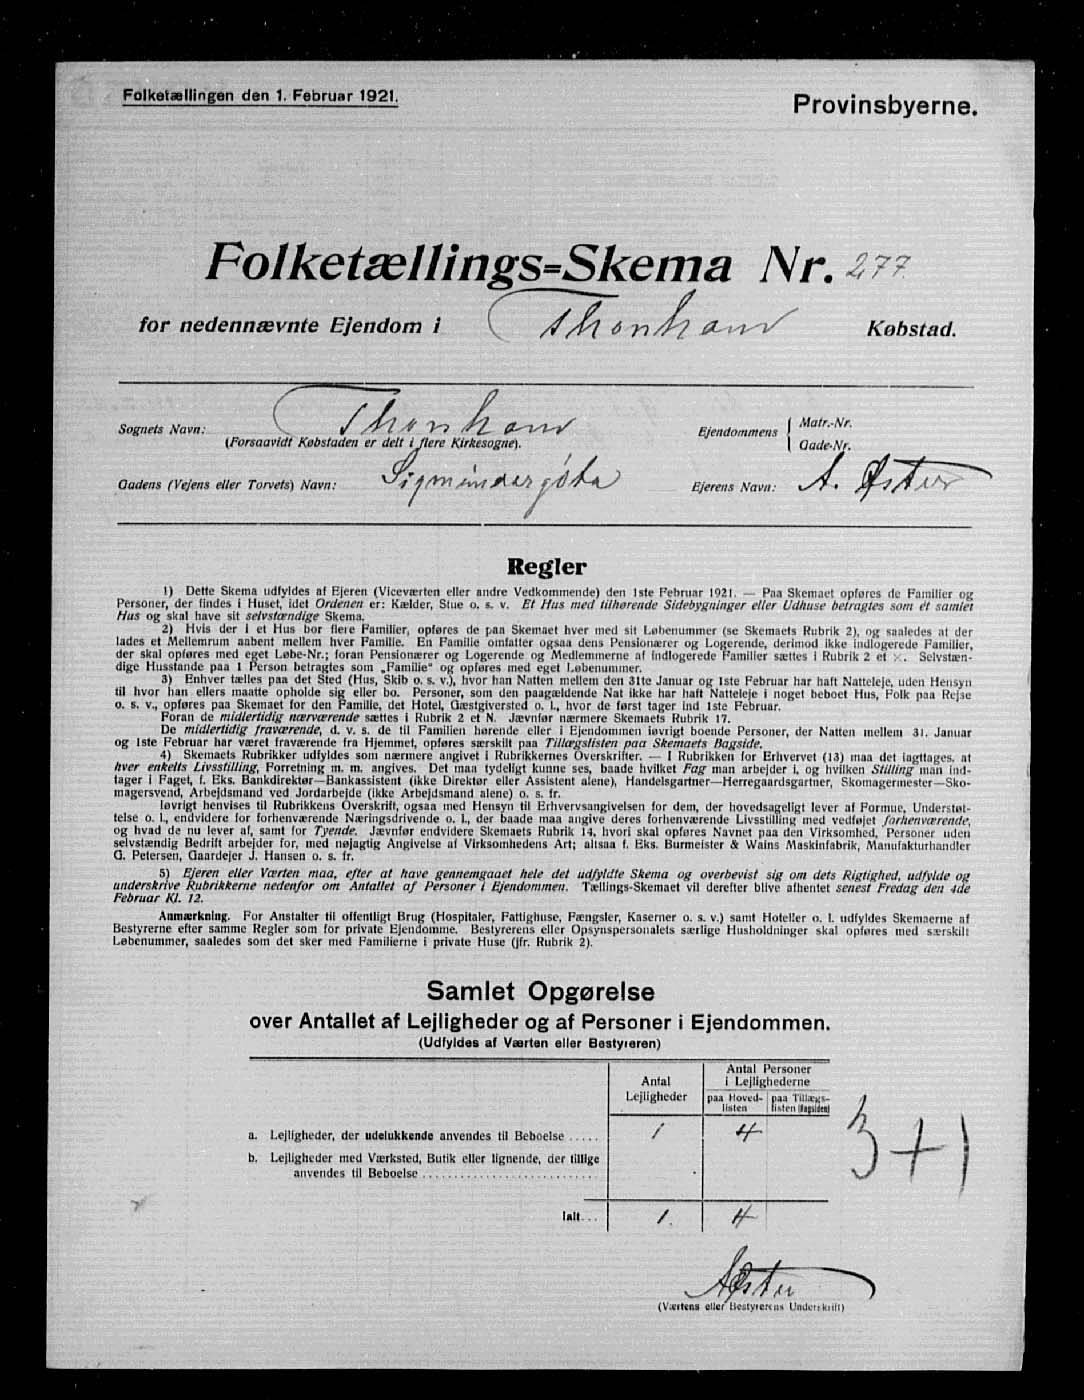 Folketællingen den 1. Februar 1921.
Provinsbyerne.
Folketællings=Skema Nr. 277.
for nedennævnte Ejendom i Thorshavn Købstad.
Sognets Navn: Thorshavn
(Forsaavidt Købstaden er delt i flere Kirkesogne).
Ejendommens { Matr.-Nr.
Gade-Nr.
Gadens (Vejens eller Torvets) Navn: Sigmundargøta
Ejerens Navn: A. Øster
Regler
1) Dette Skema udfyldes af Ejeren (Viceværten eller andre Vedkommende) den 1ste Februar 1921. — Paa Skemaet opføres de Familier og
Personer, der findes i Huset, idet Ordenen er: Kælder, Stue o. s. v. Et Hus med tilhørende Sidebygninger eller Udhuse betragtes som ét samlet
Hus og skal have sit selvstændige Skema.
2) Hvis der i et Hus bor flere Familier, opføres de paa Skemaet hver med sit Løbenummer (se Skemaets Rubrik 2), og saaledes at der
lades et Mellemrum aabent mellem hver Familie. En Familie omfatter ogsaa dens Pensionærer og Logerende, derimod ikke indlogerede Familier,
der skal opføres med eget Løbe-Nr.; foran Pensionærer og Logerende og Medlemmerne af indlogerede Familier sættes i Rubrik 2 et ×. Selvstæn-
dige Husstande paa 1 Person betragtes som „Familie“ og opføres med eget Løbenummer.
3) Enhver tælles paa det Sted (Hus, Skib o. s. v.), hvor han Natten mellem den 31te Januar og 1ste Februar har haft Natteleje, uden Hensyn
til hvor han ellers maatte opholde sig eller bo. Personer, som den paagældende Nat ikke har haft Natteleje i noget beboet Hus, Folk paa Rejse
o. s. v., opføres paa Skemaet for den Familie, det Hotel, Gæstgiversted o. l., hvor de først tager ind 1ste Februar.
Foran de midlertidig nærværende sættes i Rubrik 2 et N. Jævnfør nærmere Skemaets Rubrik 17.
De midlertidig fraværende, d. v. s. de til Familien hørende eller i Ejendommen iøvrigt boende Personer, der Natten mellem 31. Januar
og 1ste Februar har været fraværende fra Hjemmet, opføres særskilt paa Tillægslisten paa Skemaets Bagside.
4) Skemaets Rubrikker udfyldes som nærmere angivet i Rubrikkernes Overskrifter. — I Rubrikken for Erhvervet (13) maa det iagttages, at
hver enkelts Livsstilling, Forretning m. m. angives. Det maa tydeligt kunne ses, baade hvilket Fag man arbejder i, og hvilken Stilling man ind-
tager i Faget, f. Eks. Bankdirektør—Bankassistent (ikke Direktør eller Assistent alene), Handelsgartner—Herregaardsgartner, Skomagermester—Sko-
magersvend, Arbejdsmand ved Jordarbejde (ikke Arbejdsmand alene) o. s. fr.
Iøvrigt henvises til Rubrikkens Overskrift, ogsaa med Hensyn til Erhvervsangivelsen for dem, der hovedsageligt lever af Formue, Understøt-
telse o. l., endvidere for forhenværende Næringsdrivende o. l., der baade maa angive deres forhenværende Livsstilling med vedføjet forhenværende,
og hvad de nu lever af, samt for Tyende. Jævnfør endvidere Skemaets Rubrik 14, hvori skal opføres Navnet paa den Virksomhed, Personer uden
selvstændig Bedrift arbejder for, med nøjagtig Angivelse af Virksomhedens Art; altsaa f. Eks. Burmeister & Wains Maskinfabrik, Manufakturhandler
G. Petersen, Gaardejer J. Hansen o. s. fr.
5) Ejeren eller Værten maa, efter at have gennemgaaet hele det udfyldte Skema og overbevist sig om dets Rigtighed, udfylde og
underskrive Rubrikkerne nedenfor om Antallet af Personer i Ejendommen. Tællings-Skemaet vil derefter blive afhentet senest Fredag den 4de
Februar Kl. 12.
Anmærkning. For Anstalter til offentligt Brug (Hospitaler, Fattighuse, Fængsler, Kaserner o. s. v.) samt Hoteller o. l. udfyldes Skemaerne af
Bestyrerne efter samme Regler som for private Ejendomme. Bestyrerens eller Opsynspersonalets særlige Husholdninger skal opføres med særskilt
Løbenummer, saaledes som det sker med Familierne i private Huse (jfr. Rubrik 2).
Samlet Opgørelse
over Antallet af Lejligheder og af Personer i Ejendommen.
(Udfyldes af Værten eller Bestyreren)
Antal
Lejligheder
Antal Personer
i Lejlighederne
paa Hoved-
listen
paa Tillægs-
listen (Bagsiden)
a. Lejligheder, der udelukkende anvendes til Beboelse ..... 1 4
b. Lejligheder med Værksted, Butik eller lignende, der tillige
anvendes til Beboelse
3+1
Ialt... 1. 4
A Øster
(Værtens eller Bestyrerens Underskrift)